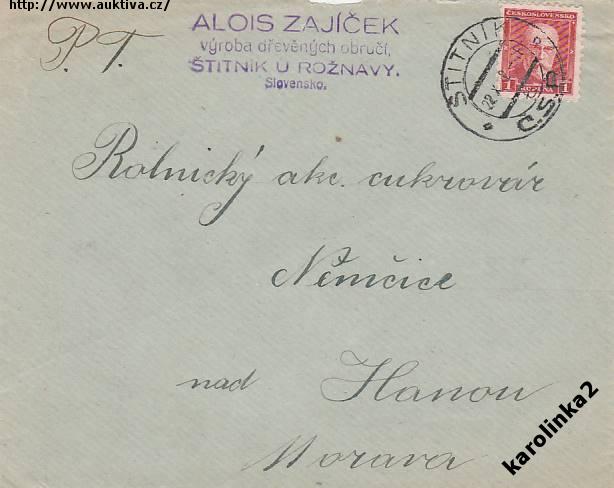 http://www.auktiva.cz/
P. T.
ALOIS ZAJÍČEK
výroba dřevěných obručí,
ŠTITNIK U ROŽNAVY.
Slovensko.
ČESKOSLOVENSKO
1 KORUNA 1
ŠTITNIK
22. X.
ČSR
Rolnický akc. cukrovár
Němčice
nad Hanou
Morava
karolinka2